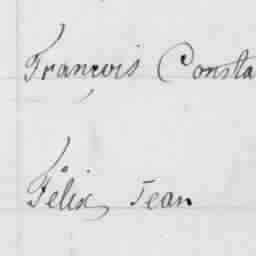 François Consta
Félix, Jean